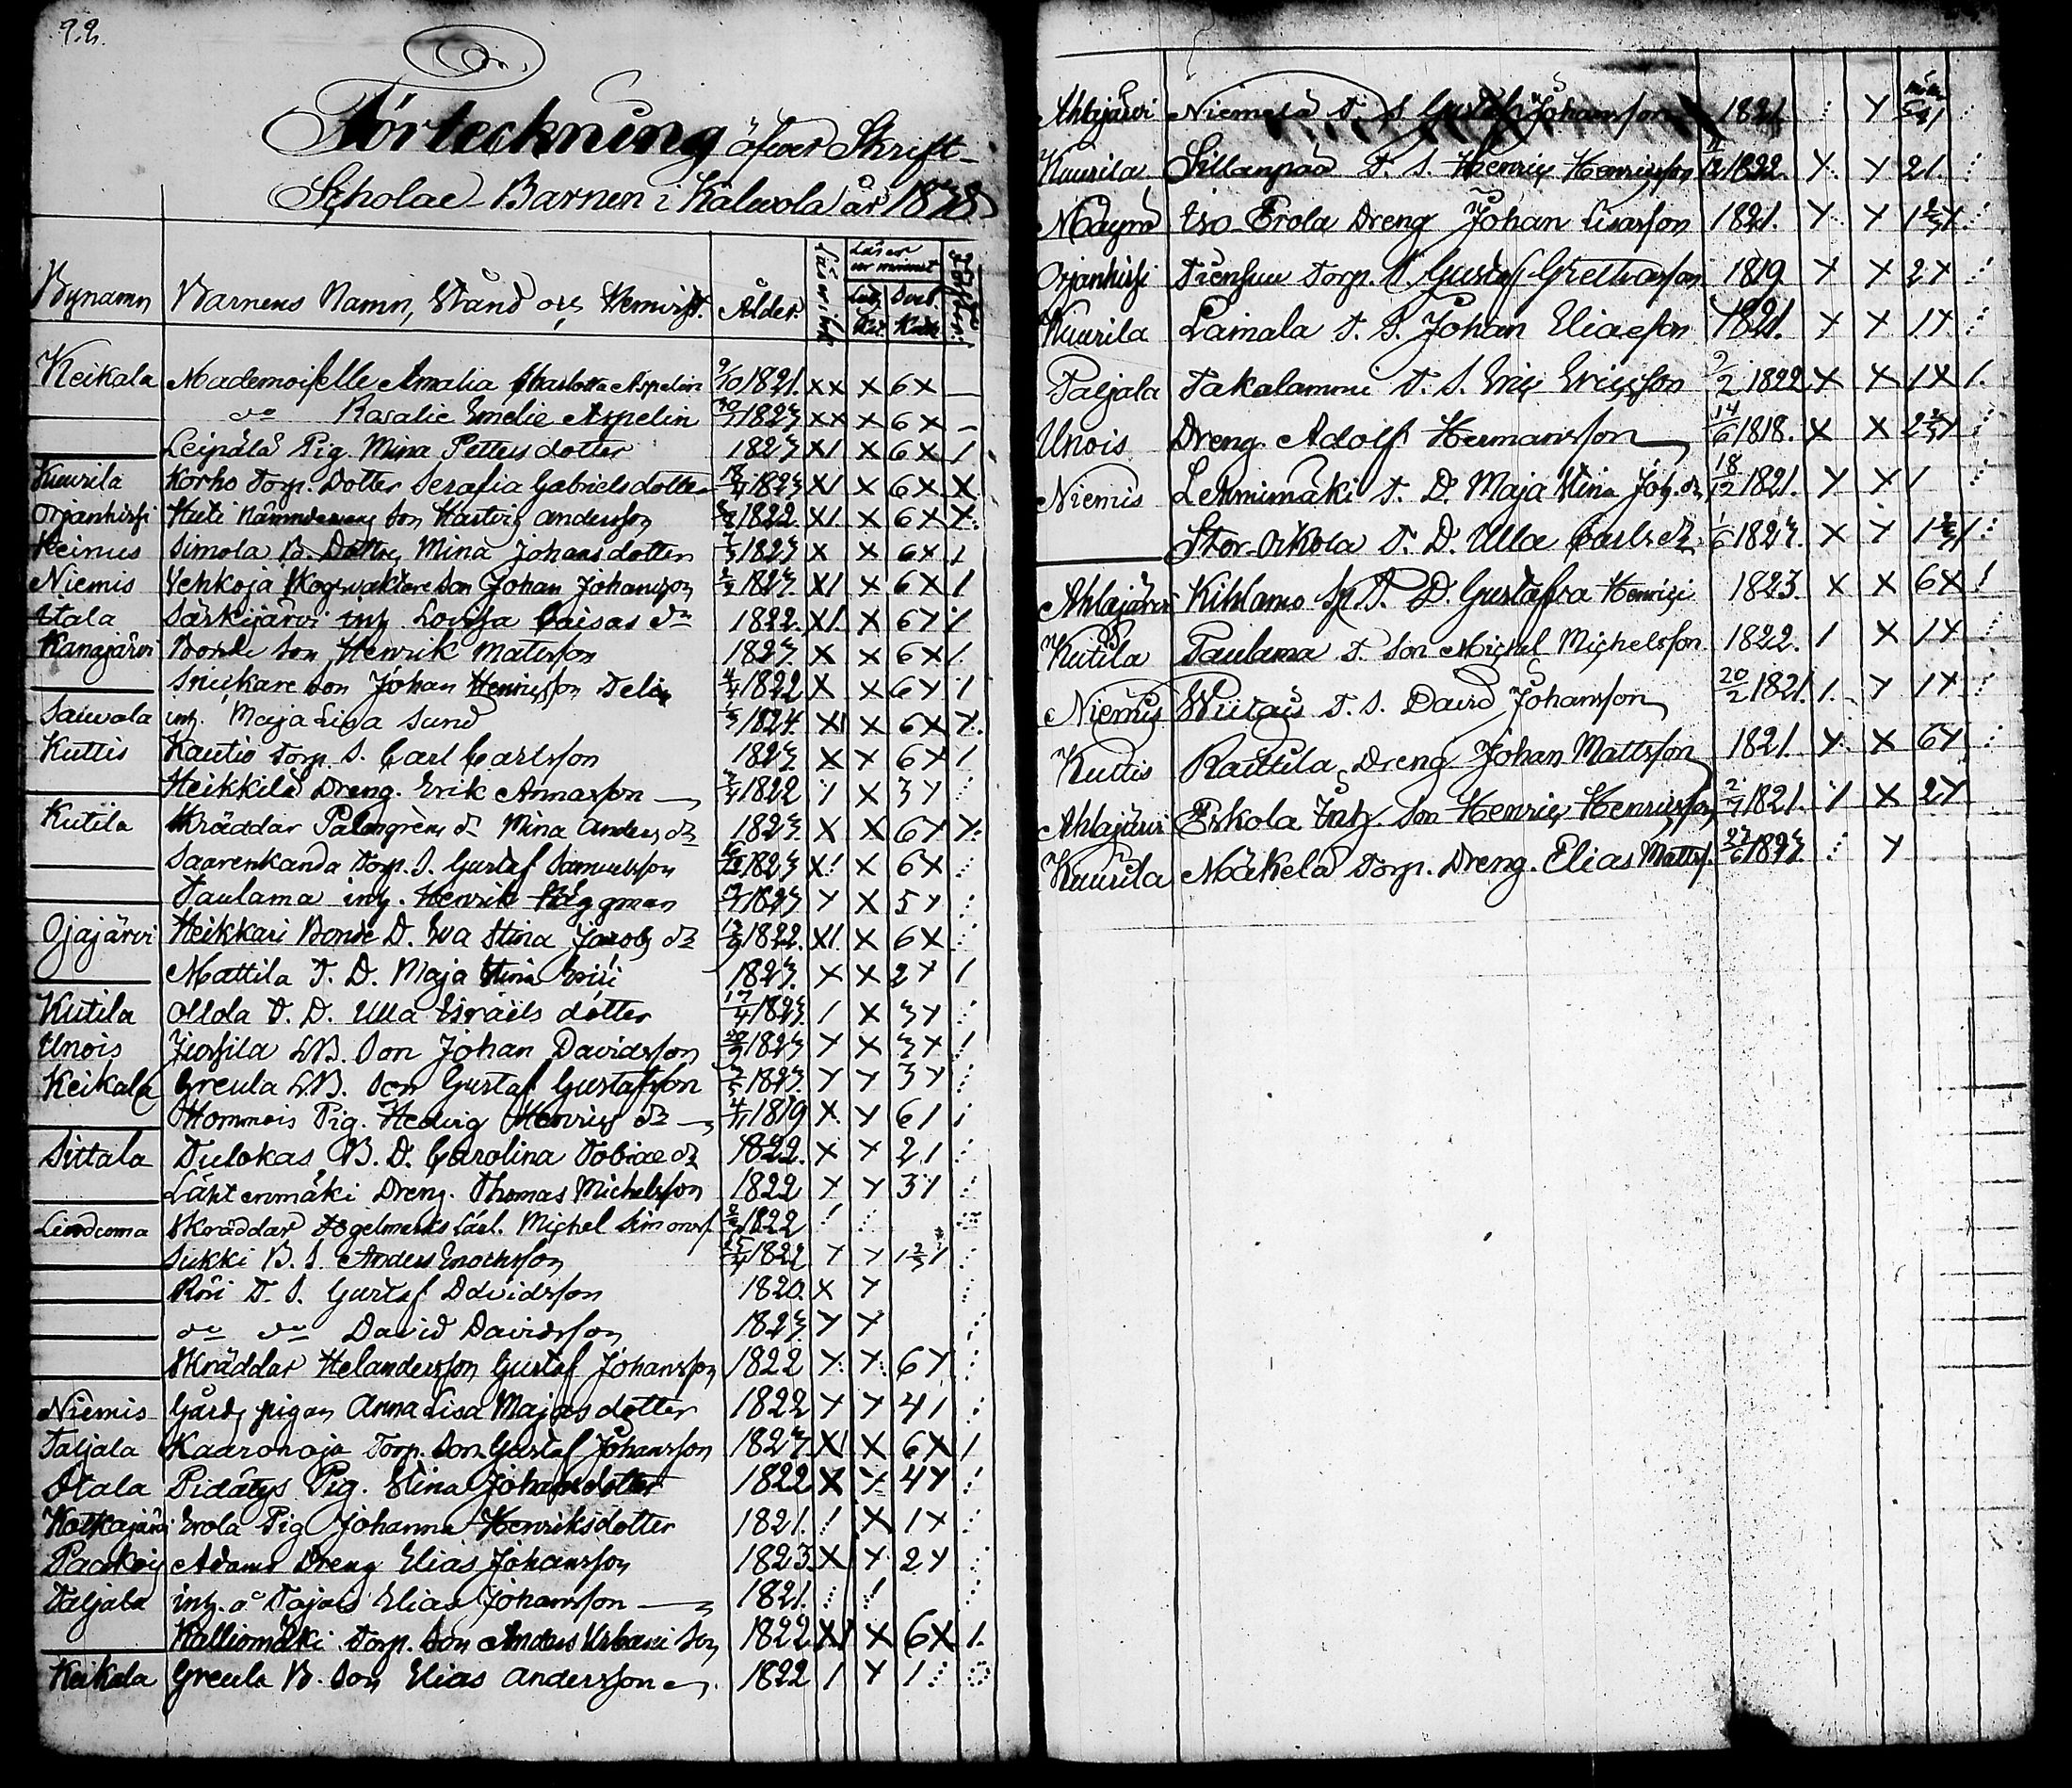 Förteckning öfwer Skrift-
Scholae Barnen i Kalwola år 1838
Bynamn Barnens Namn, Stånd och Hemvist. Ålder. Läser ur minnet
Keikala Mademoiselle Amalia Charlotta Aspelin 9/10 1821. XX X 6 X —
do Rosalie Emelie Aspelin 1823 XX X 6 X —
Leipälä Pig. Mina Petters dotter 1823 X1 X 6 X 1
Kuurila Korho Torp. Dotter Serafia Gabriels dotter 1823 X1 X 6 X X
Orjanhirsi Huti son Hartvig andersson 1822. X1. X 6 X X.
Heinus Simola B. Dotter Mina Johans dotter 1823 X X 6 X 1
Niemis Vehkoja Skogvaktare Son Johan Johansson 1823. X1 X 6 X 1
Itala Särkijärvi inh. Lovisa Caisas dr 1822. X1. X 6 Y 1
Kanajärvi Bonde Son Henrik Matsson 1823. X X 6 X 1.
Snickare Son Johan Henricsson Telin 4/4 1822 X X 6 Y 1
Sauvala inh. Maja Lisa Sund 1824. X1 X 6 X X.
Kuttis Kautio Torp. S. Carl Carlsson 1823 X X 6 X 1
Heikkilä Dreng. Erik Annasson 1822 1 X 3 Y
Kutila Skräddar Palmgrens dr Mina Anders dr 1823. X X 6 Y Y.
Saarenkanda Torp. S. Gustaf Samuelsson 1823 X! X 6 X
Taulama inh. Henrik Häggman 1823 Y X 5 Y
Ojajärvi Heikkari Bonde D. Eva Stina Jacobs dr 1822. X1. X 6 X
Mattila T. D. Maja Stina Erici 1823. X X 2 Y 1
Kutila Ollola T. D. Ulla Esraëls dotter 17/4 1823. 1 X 3 Y
Unois Jussila LB. Son Johan Davidsson 1823 Y X 3 X !
Keikala Greula LB. Son Gustaf Gustafsson 1823. Y Y 3 Y
Hommois Pig. Hedvig Henrics dr 1819 X Y 6 1
Sittala Tulokas B. D. Carolina Tobiae dr 1822. X Y 2 1
Lähtenmäki Dreng. Thomas Michelsson 1822 Y Y 3 1
Skräddar Michel Simonss. 1822 !
Sukki B. S. Anders Enochsson 1822 Y Y 1 2/3 1
Röri T. S. Gustaf Davidsson 1820. X Y
do do David Davidsson 1823. Y Y
Skräddar Helandersson Gustaf Johansson 1822 Y Y 6 Y
Niemis Gårds pigan Anna Lisa Majas dotter 1822 Y Y 4 1
Taljala Kaaronoja Torp. Son Gustaf Johansson 1823. X1 X 6 X 1
Otala Pidätys Pig. Stina Johans dotter 1822 X Y 4 Y !
Kotkajärvi Erola Pig Johanna Henriksdotter 1821. ! X 1 X
Adams Dreng Elias Johansson 1823 X Y 2 Y
Taljala inh. å Tajais Elias Johansson 1821.
Kalliomäki Torp. Son Anders Urbani Son 1822 X1 X 6 X 1.
Keikala Greula B. Son Elias andersson 1822 1 Y 1
Ahlajärvi Niemelä T. S Gustaf Johansson 1821 Y
Kuurila Sillanpää T. S. Henric Henricsson 1822. Y Y 21.
Iso-Erola Dreng Johan Lisasson 1821. Y Y 1 2/3 Y
Orjanhirsi Tiensuu Torp. S. Gustaf Gretasson 1819 X X 2 X
Kuurila Lainala T. S. Johan Eliaeson 1821. X X 1 X
Taljala Takalammi T. S. Eric Ericsson 9/2 1822 X X 1 X 1.
Unois Dreng Adolf Hermansson 14/6 1818. X X 2 2/3 Y
Niemis Lehmimäki T. D. Maja Stina Joh. dr 18/12 1821. Y X 1
Stor-Orkola T. D. Ulla Carls dr 1/6 1823. X Y 1 2/3 1
Ahlajärvi Kihlamo T. D. Gustafva Henrici 1823. X X 6 X !
Kutila Taulama T. Son Michel Michelsson 1822. 1 X 1 X
Niemis Wiitais T. S. David Johansson 20/2 1821. 1. Y 1 X
Kuttis Rauttila Dreng Johan Mattsson 1821. Y X 6 Y
Ahlajärvi Eskola Inh. Son Henric Henricsson 2/7 1821. 1 X 2 Y
Kuurila Mäkelä Torp. Dreng. Elias Mattss. 27/6 1823. Y